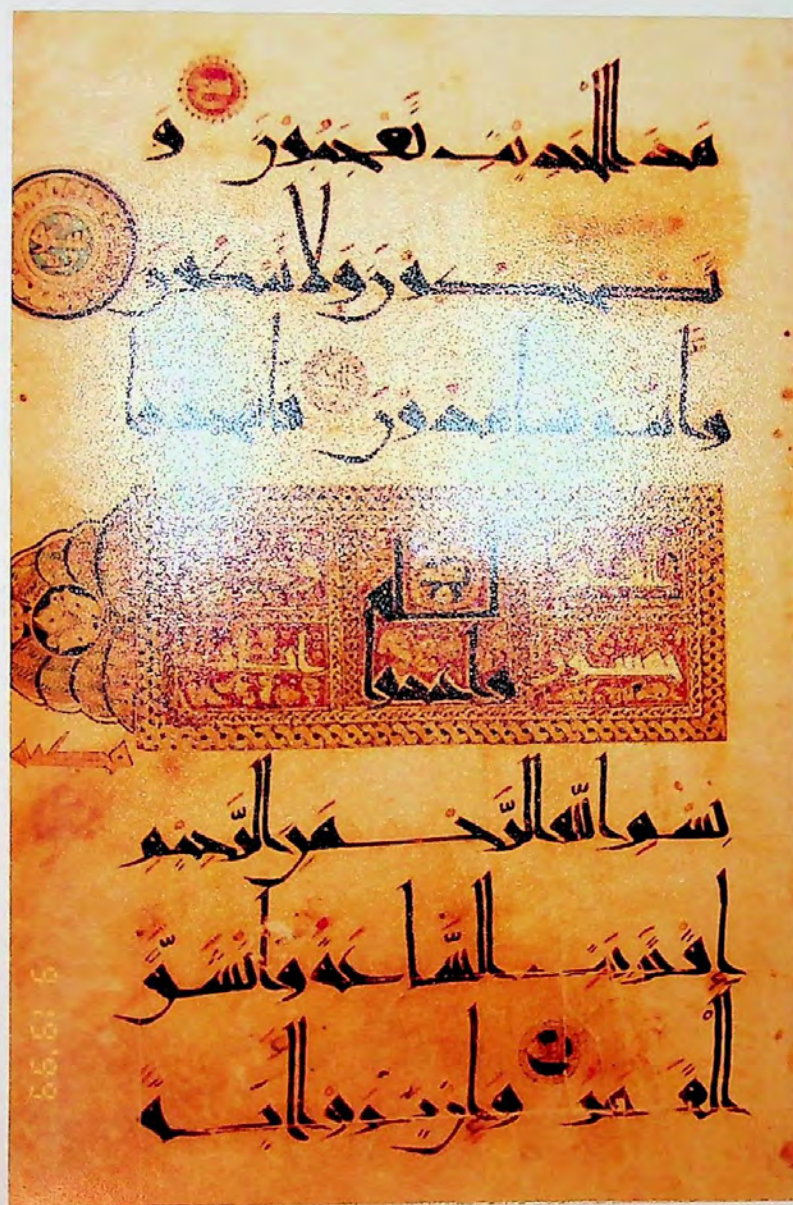 هٰذَا الْحَدِيثِ تَعْجَبُونَ وَ
تَضْحَكُونَ وَلَا تَبْكُونَ
وَأَنْتُمْ سَامِدُونَ فَاسْجُدُوا
لله
واعبدوا
بِسْمِ اللّٰهِ الرَّحْمٰنِ الرَّحِيمِ
اِقْتَرَبَتِ السَّاعَةُ وَانْشَقَّ
الْقَمَرُ وَإِنْ يَرَوْا آيَةً